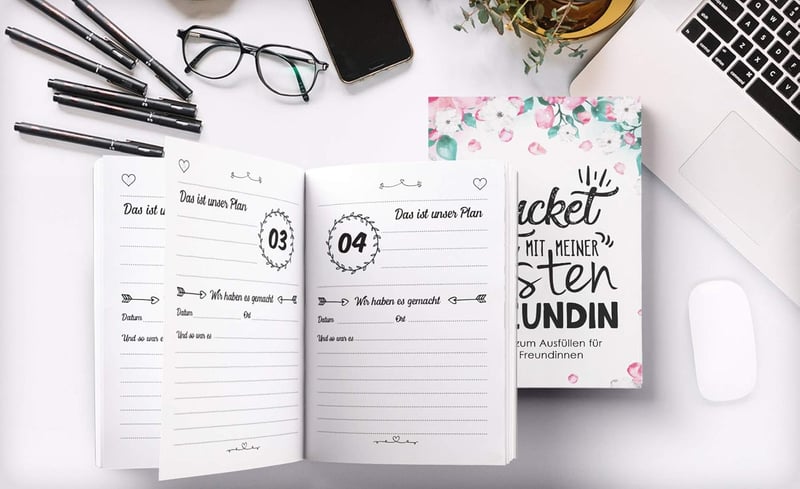 Das ist u
Datum
Und so war e
Das ist unser Plan
03
Wir haben es gemacht
Datum Ort
Und so war es
Das ist unser Plan
04
Wir haben es gemacht
Datum Ort
Und so war es
cket
MIT MEINER
sten
UNDIN
zum Ausfüllen für
Freundinnen